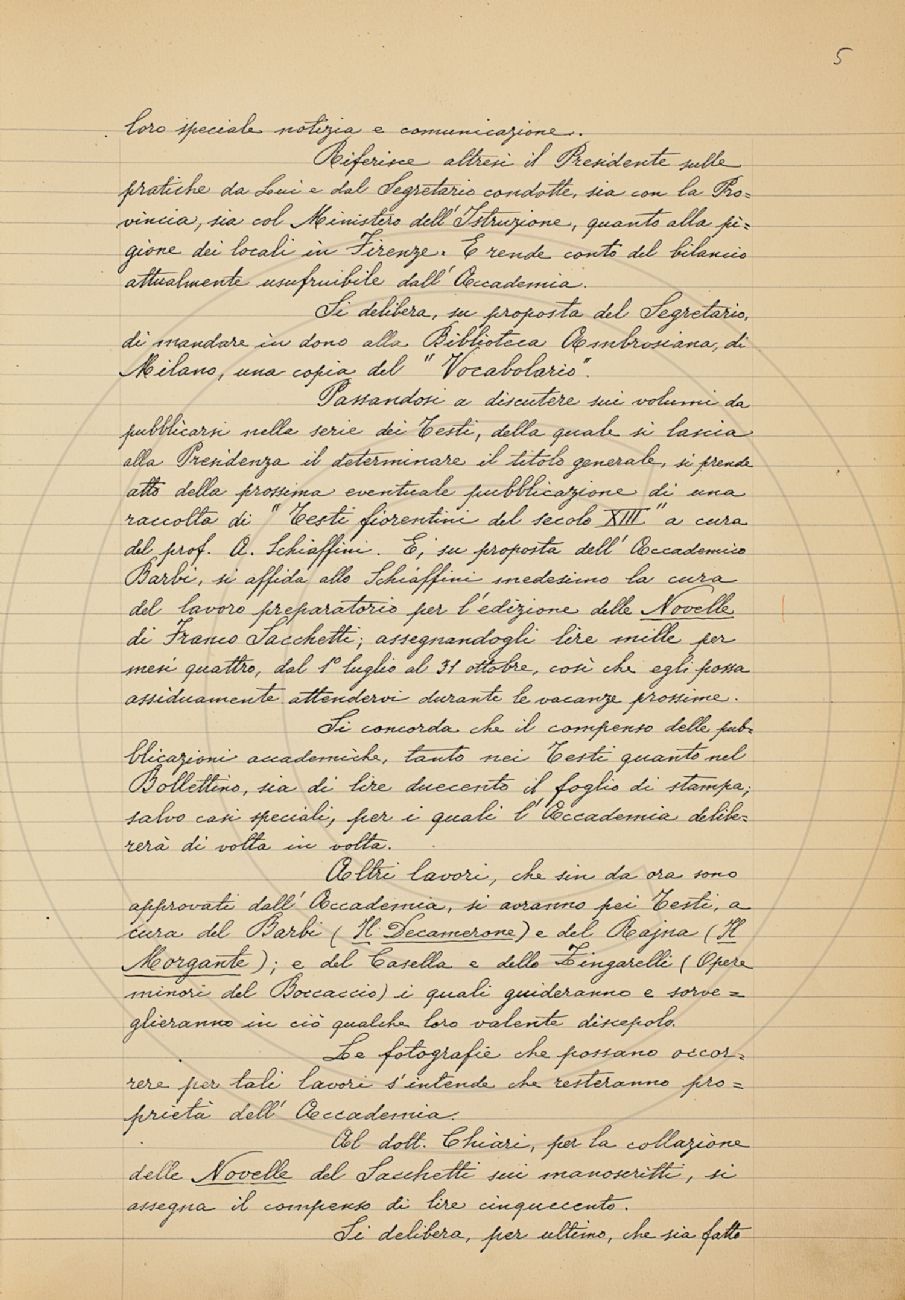 5
loro speciale notizia e comunicazione.
Riferisce altresì il Presidente sulle
pratiche da Lui e dal Segretario condotte, sia con la Pro=
vincia, sia col Ministero dell'Istruzione, quanto alla pi=
gione dei locali in Firenze. E rende conto del bilancio
attualmente usufruibile dall'Accademia.
Si delibera, su proposta del Segretario,
di mandare in dono alla Biblioteca Ambrosiana, di
Milano, una copia del "Vocabolario".
Passandosi a discutere sui volumi da
pubblicarsi nella serie dei Testi, della quale si lascia
alla Presidenza il determinare il titolo generale, si prende
atto della prossima eventuale pubblicazione di una
raccolta di "Testi fiorentini del secolo XIII" a cura
del prof. A. Schiaffini. E, su proposta dell'Accademico
Barbi, si affida allo Schiaffini medesimo la cura
del lavoro preparatorio per l'edizione delle Novelle
di Franco Sacchetti; assegnandogli lire mille per
mesi quattro, dal 1º luglio al 31 ottobre, così che egli possa
assiduamente attendervi durante le vacanze prossime.
Si concorda che il compenso delle pub=
blicazioni accademiche, tanto nei Testi quanto nel
Bollettino, sia di lire duecento il foglio di stampa;
salvo casi speciali, per i quali l'Accademia delibe=
rerà di volta in volta.
Altri lavori, che sin da ora sono
approvati dall'Accademia, si avranno pei Testi, a
cura del Barbi (Il Decamerone) e del Rajna (Il
Morgante); e del Casella e dello Zingarelli (Opere
minori del Boccaccio) i quali guideranno e sorve=
glieranno in ciò qualche loro valente discepolo.
Le fotografie che possano occor=
rere per tali lavori s'intende che resteranno pro=
prietà dell'Accademia.
Al dott. Chiari, per la collazione
delle Novelle del Sacchetti sui manoscritti, si
assegna il compenso di lire cinquecento.
Si delibera, per ultimo, che sia fatto